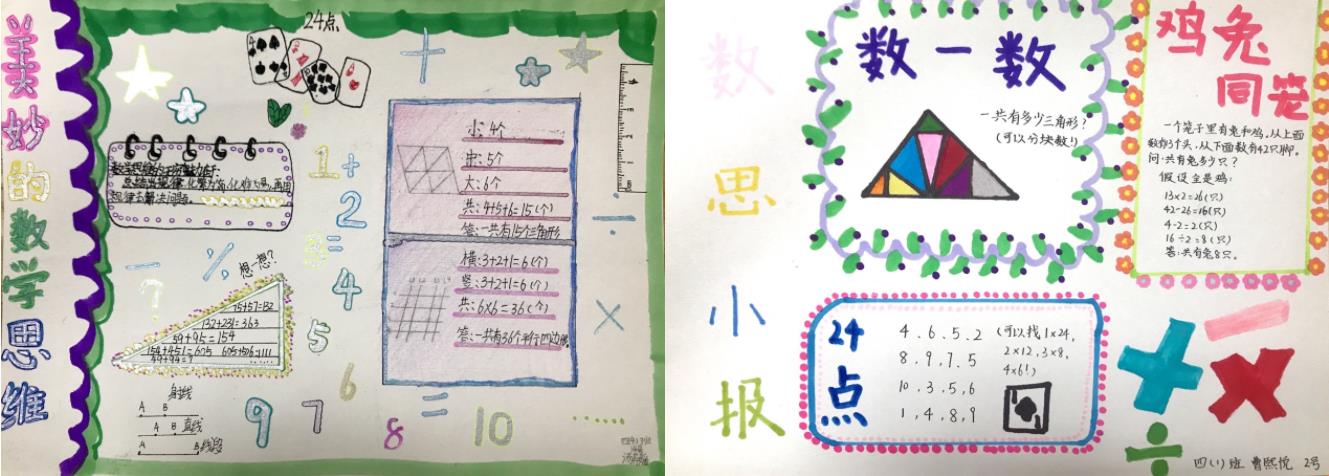 美妙的数学思维
24点
总结出规律,化繁为简,化难为易,再用
规律去解决问题。
小:4个
中:5个
大:6个
共:4+5+6=15(个)
答:一共有15个三角形
横:3+2+1=6(个)
竖:3+2+1=6(个)
共:6×6=36(个)
答:一共有36个平行四边形
1+
2
3=
4
5
6
7
8
9
10
想一想?
75+57=132
132+231=363
59+95=154
154+451=605 605+506=1111
射线
A B
A B 直线
A B线段
数思小报
数一数
一共有多少三角形?
(可以分块数!)
鸡兔
同笼
一个笼子里有兔和鸡,从上面
数有13个头,从下面数有42只脚。
问:共有兔多少只?
假设全是鸡:
13×2=26(只)
42-26=16(只)
4-2=2(只)
16÷2=8(只)
答:共有兔8只。
24点
4.6.5.2
8.9.7.5
10.3.5.6
1,4,8,9
(可以找1×24,
2×12,3×8,
4×6!)
四(1)班 曹熙悦 2号